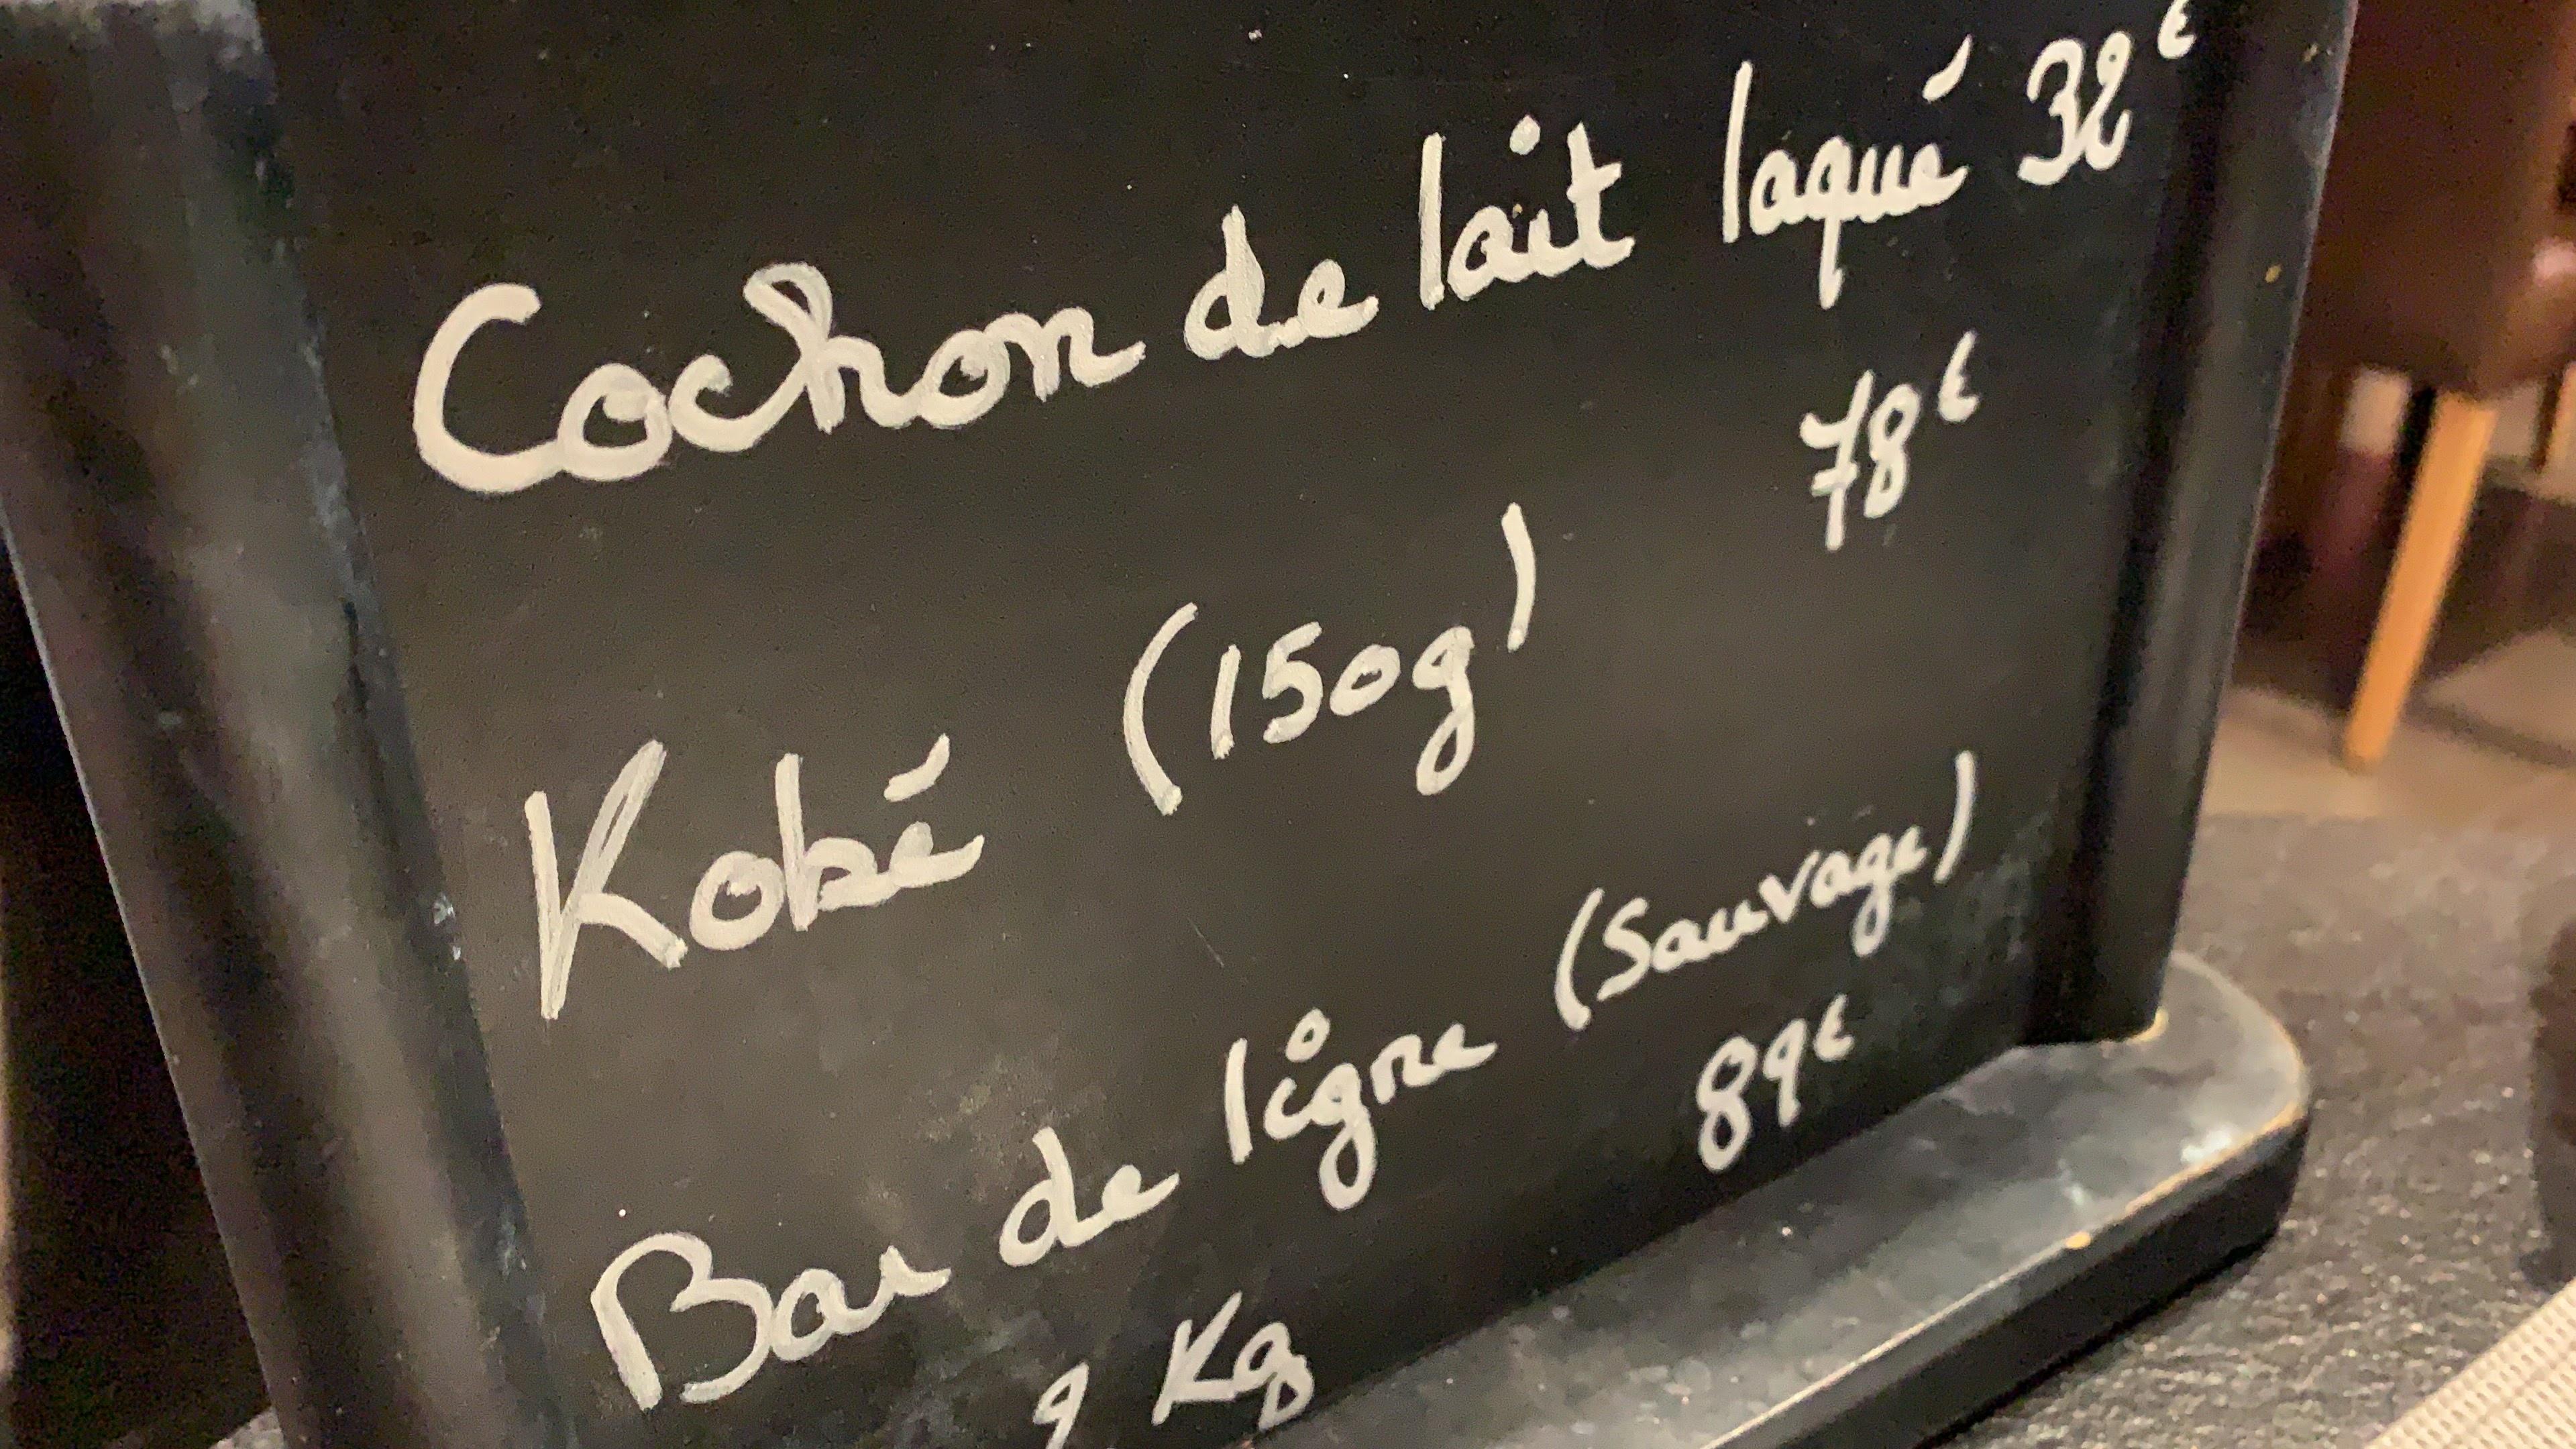 Cochon de lait laqué 38€
Kobé (150g) 78€
Bar de ligne (Sauvage)
89€
Kg